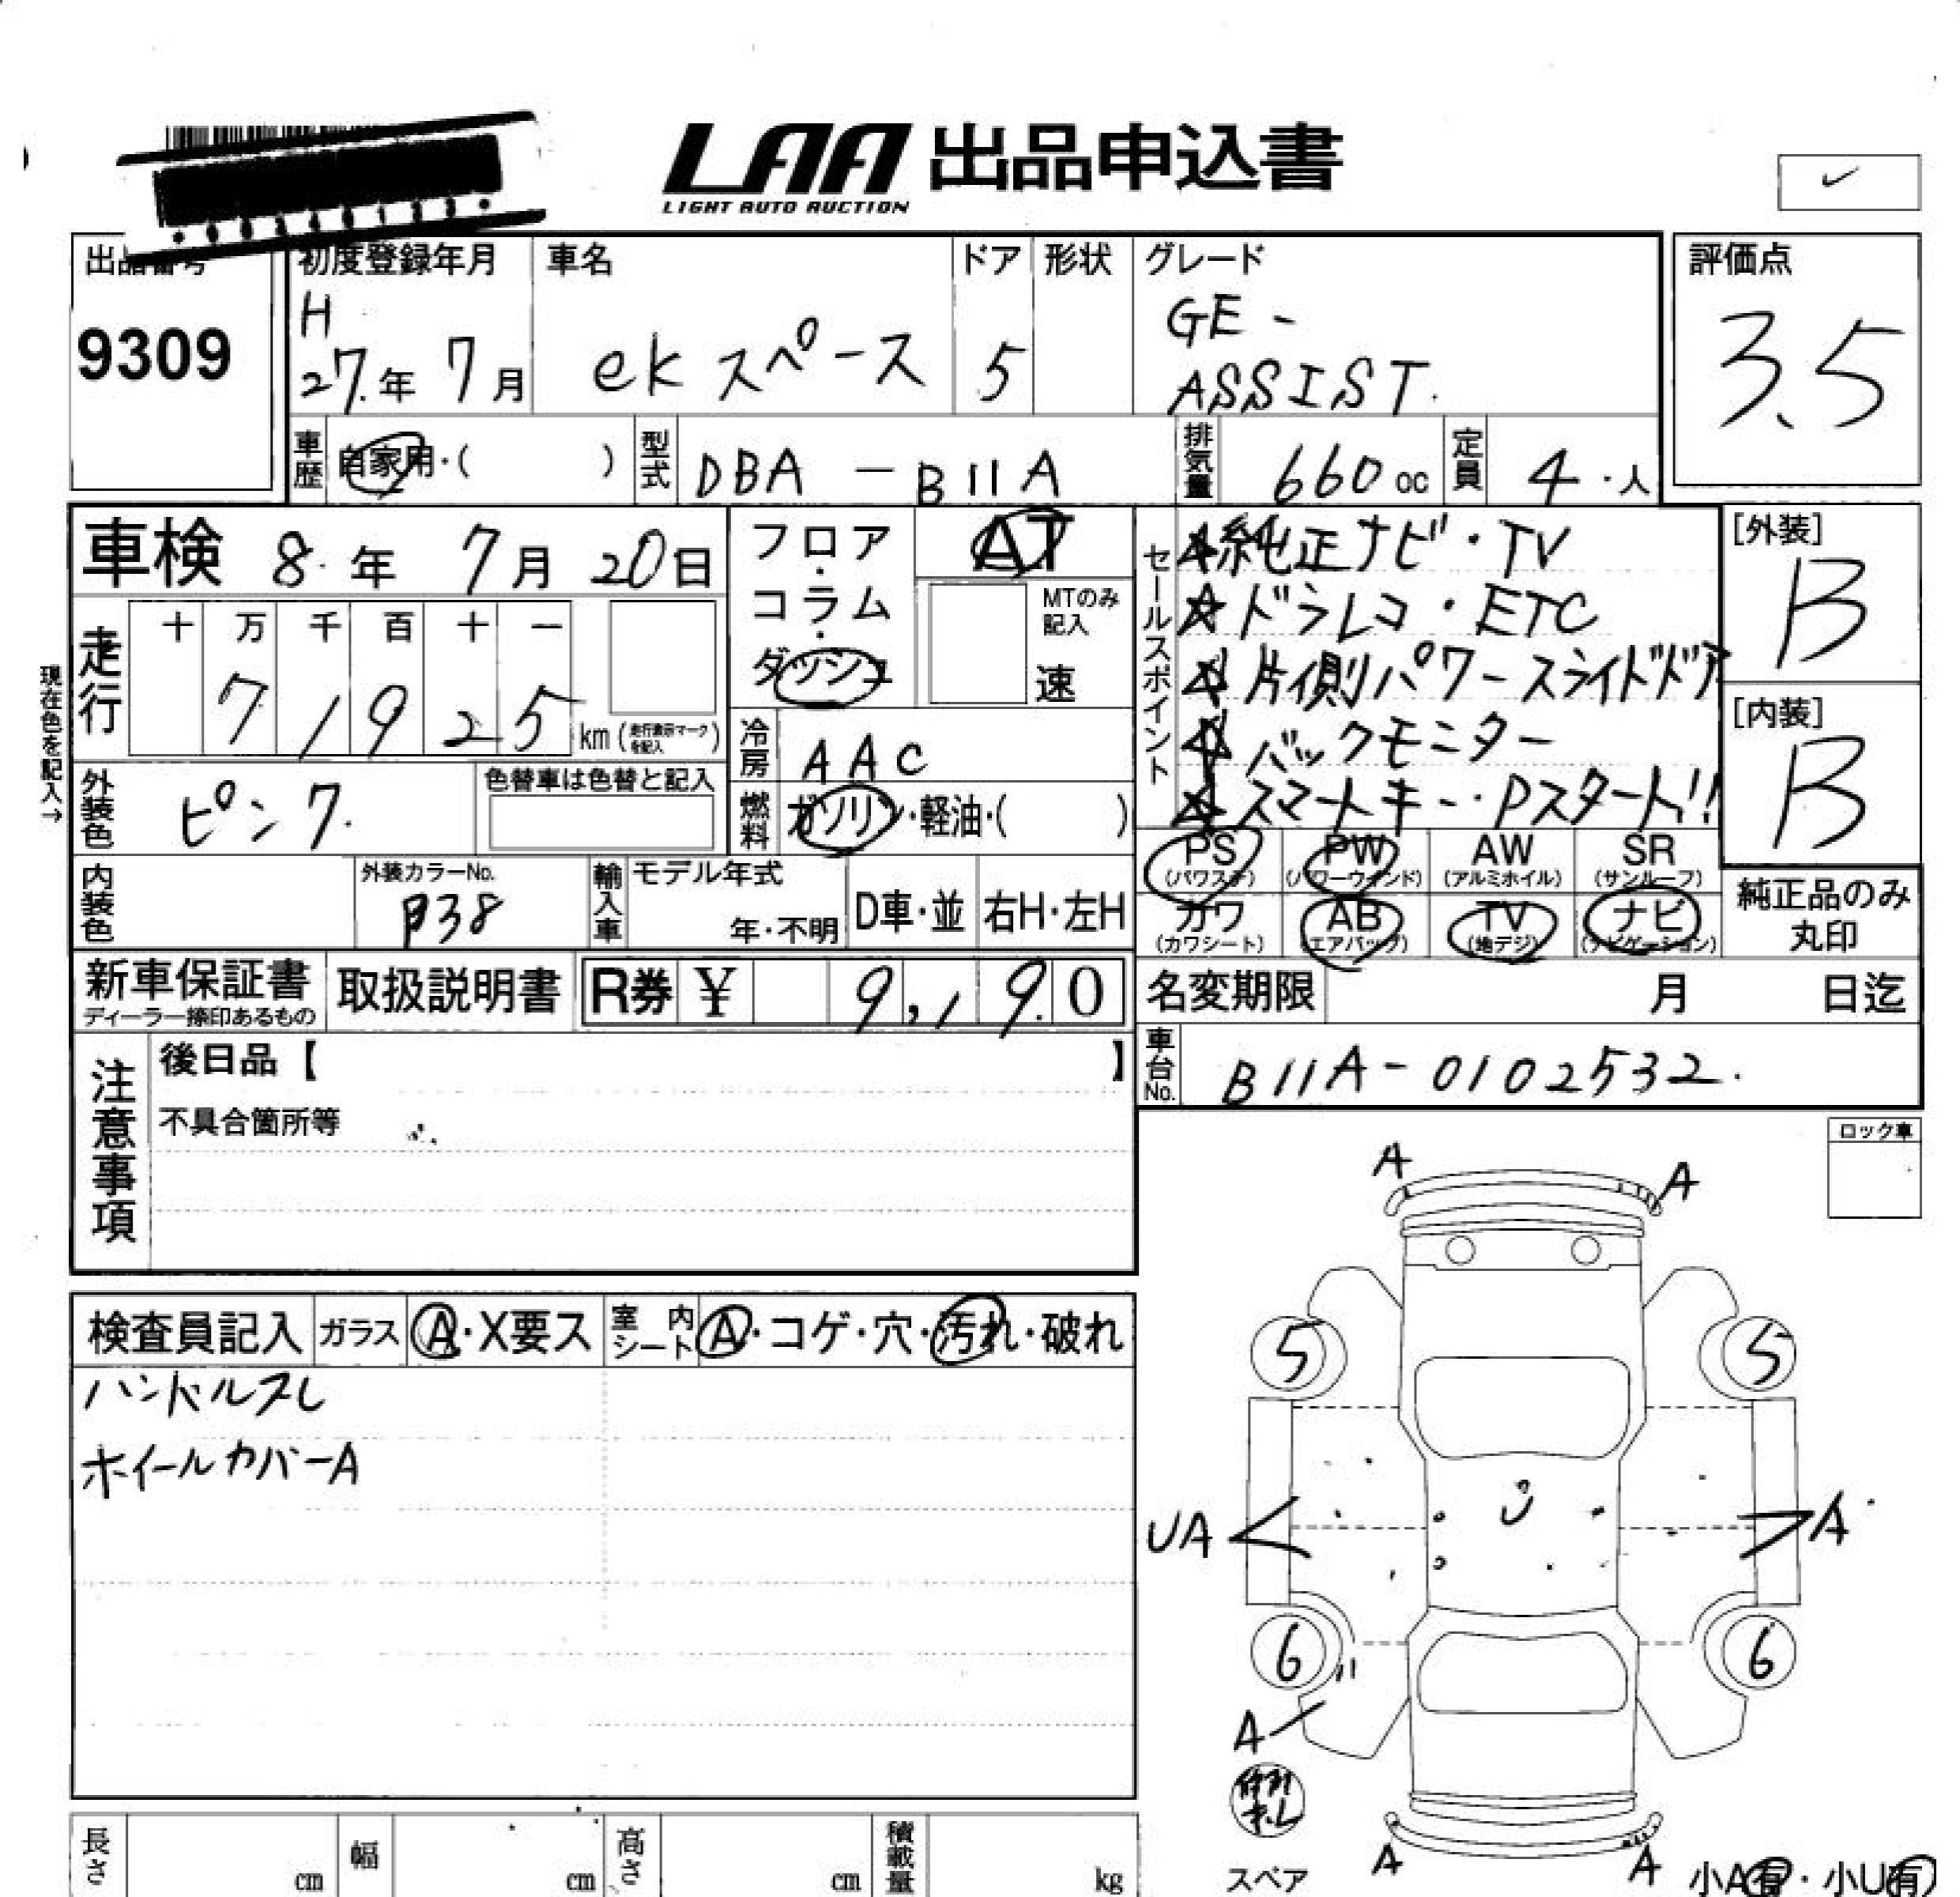 LAA 出品申込書
LIGHT AUTO AUCTION
出品番号
9309
初度登録年月
H
27.年 7月
車名
ekスペース
ドア
5
形状
グレード
GE-
ASSIST.
評価点
3.5
車歴
自家用・( )
型式
DBA-B11A
排気量
660cc
定員
4・人
車検 8.年 7月 20日
フロア・コラム・ダッシュ
AT
MTのみ記入
速
セールスポイント
☆純正ナビ・TV
☆ドラレコ・ETC
☆片側パワースライドドア
☆バックモニター
☆スマートキー・Pスタート!!
[外装]
B
[内装]
B
現在色を記入→
走行
十 万 千 百 十 一
7 1 9 2 5 km(走行表示マークを記入)
冷房
AAC
外装色
ピンク.
色替車は色替と記入
燃料
ガソリン・軽油・( )
PS (パワステ)
PW (パワーウインド)
AW (アルミホイル)
SR (サンルーフ)
カワ (カワシート)
AB (エアバッグ)
TV (地デジ)
ナビ (ナビゲーション)
純正品のみ丸印
内装色
外装カラーNo.
P38
輸入車
モデル年式
年・不明
D車・並
右H・左H
新車保証書
ディーラー捺印あるもの
取扱説明書
R券 ¥ 9,190
名変期限 月 日迄
車台No.
B11A-0102532.
注意事項
後日品【 】
不具合箇所等
ロック車
A
A
検査員記入
ガラス
A・X要ス
室内シート
A・コゲ・穴・汚れ・破れ
ハンドルスレ
ホイールカバーA
5
5
UA
A
6
6
A
スペア
A
A
小A有・小U有
長さ cm
幅 cm
高さ cm
積載量 kg